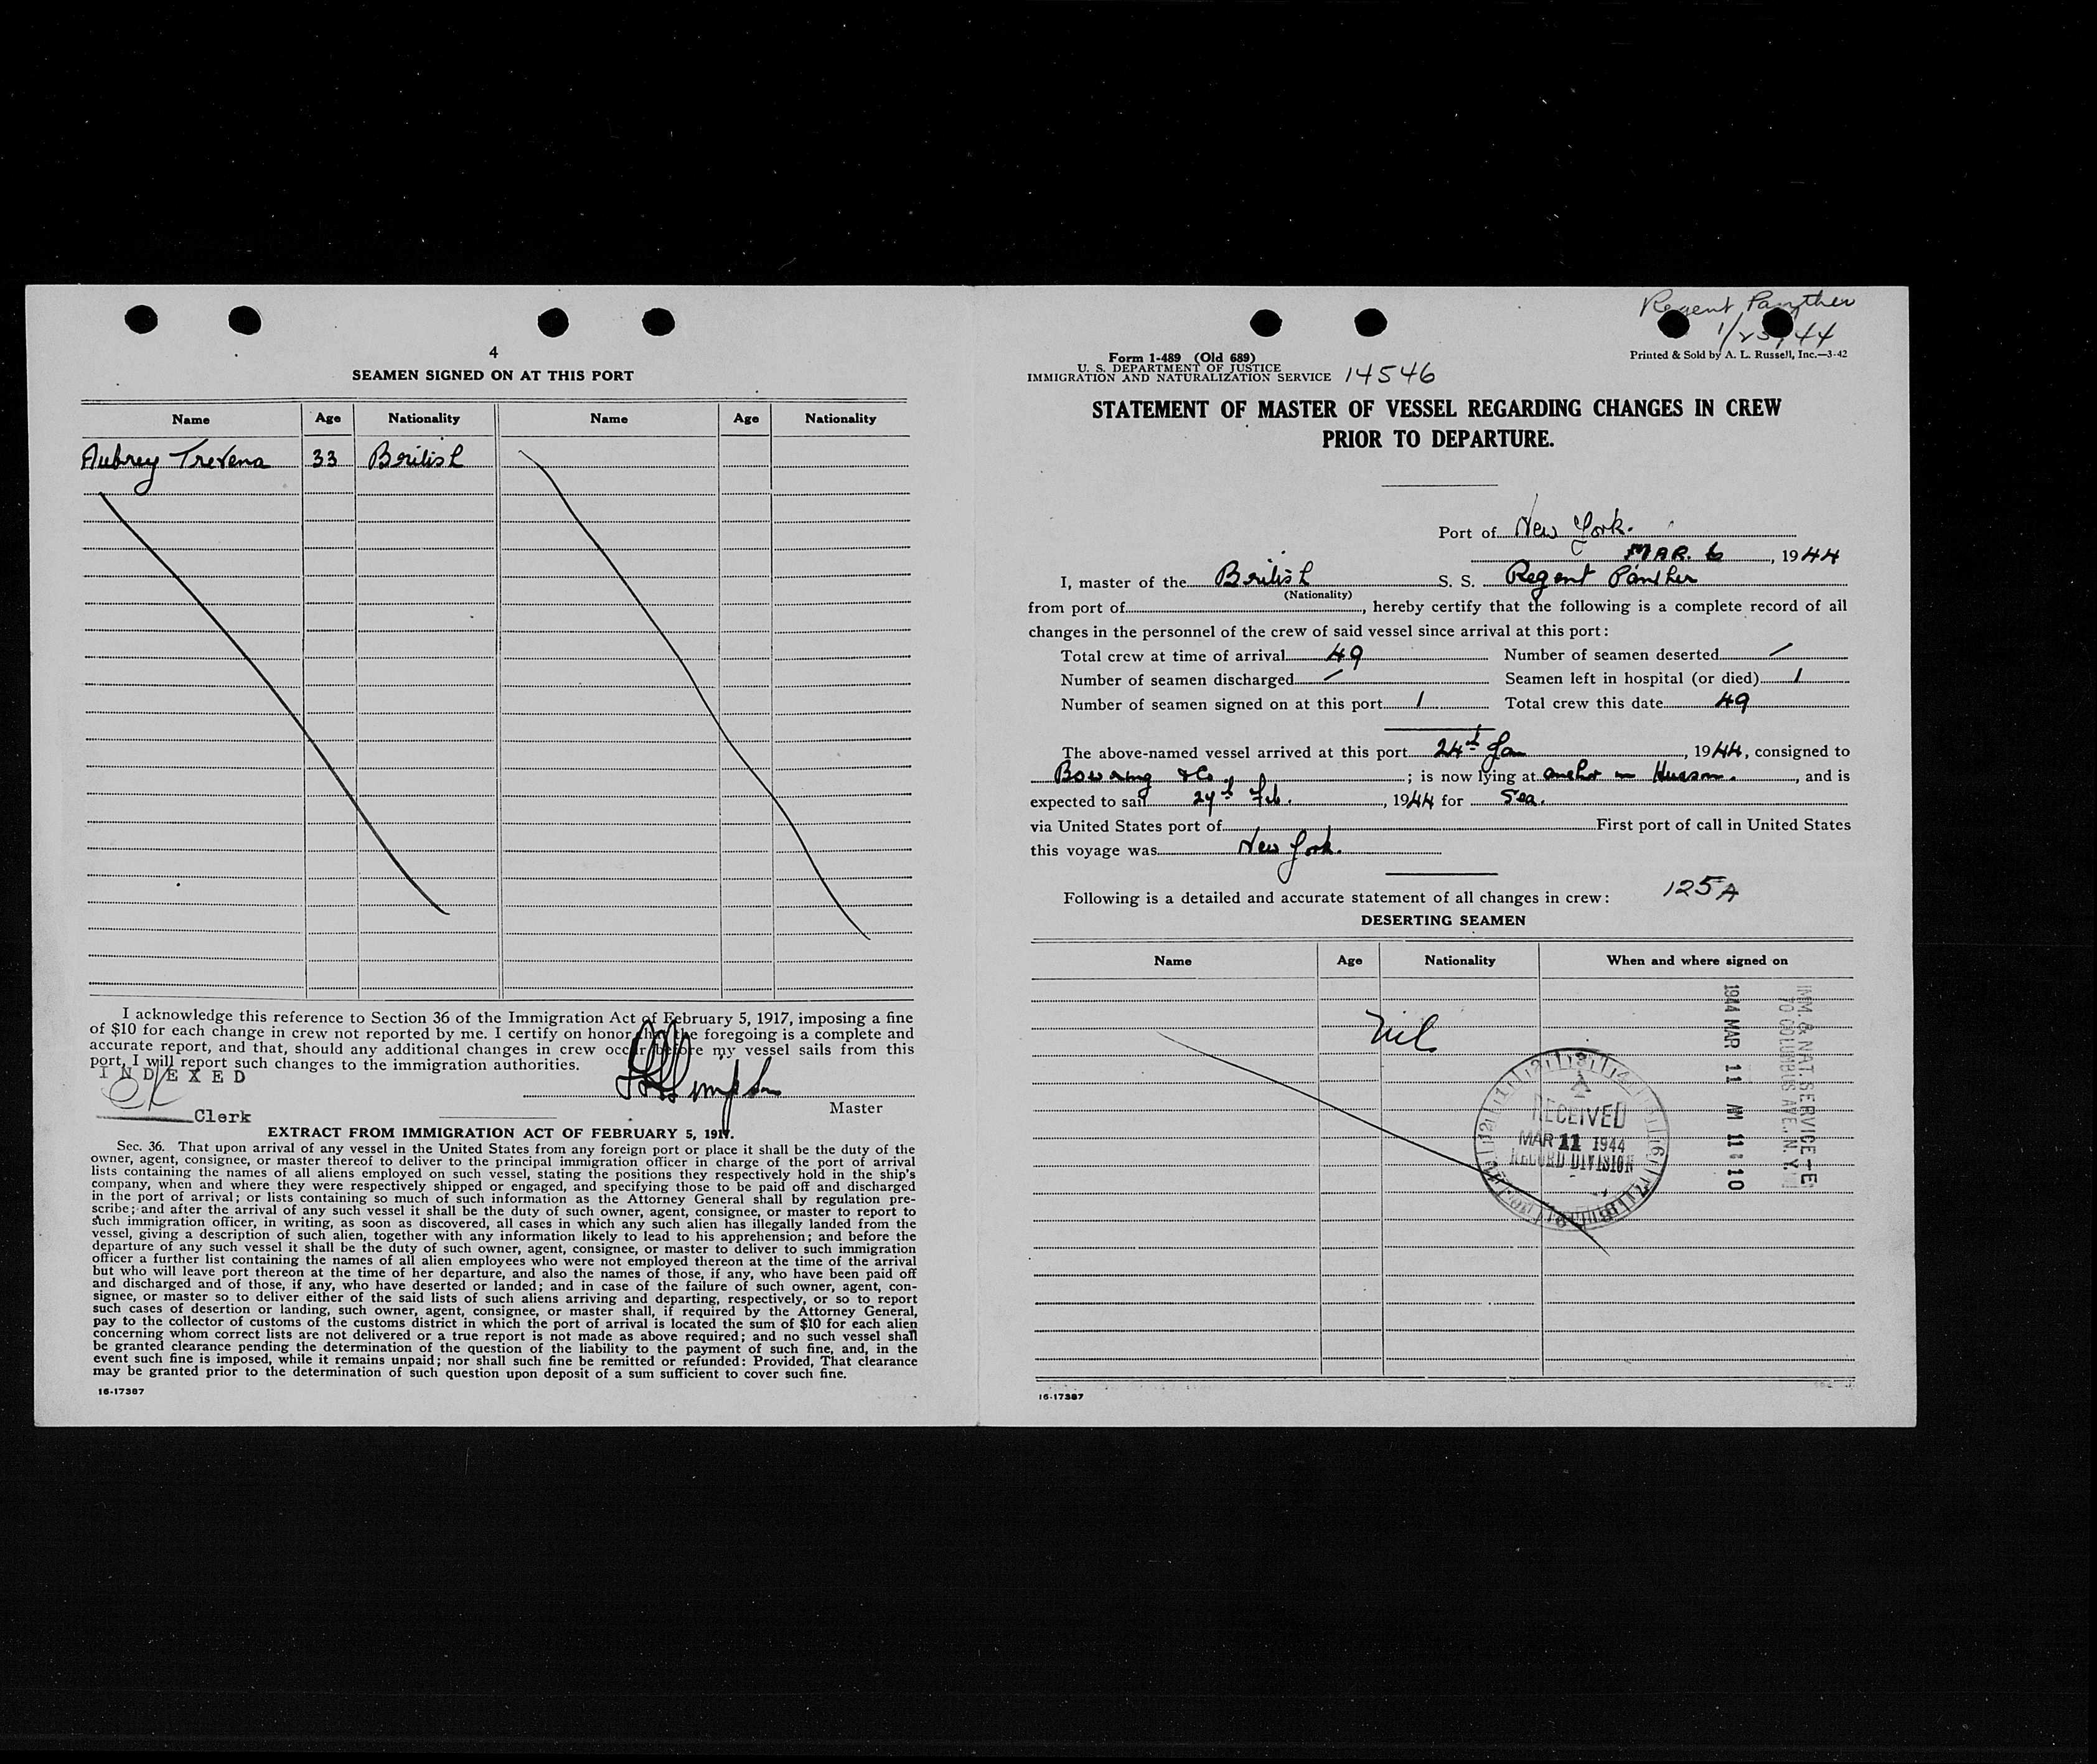 4
SEAMEN SIGNED ON AT THIS PORT
Name Age Nationality Name Age Nationality
Aubrey Trevena 33 British
I acknowledge this reference to Section 36 of the Immigration Act of February 5, 1917, imposing a fine
of $10 for each change in crew not reported by me. I certify on honor that the foregoing is a complete and
accurate report, and that, should any additional changes in crew occur before my vessel sails from this
port, I will report such changes to the immigration authorities.
INDEXED
Clerk
Master
EXTRACT FROM IMMIGRATION ACT OF FEBRUARY 5, 1917.
Sec. 36. That upon arrival of any vessel in the United States from any foreign port or place it shall be the duty of the
owner, agent, consignee, or master thereof to deliver to the principal immigration officer in charge of the port of arrival
lists containing the names of all aliens employed on such vessel, stating the positions they respectively hold in the ship's
company, when and where they were respectively shipped or engaged, and specifying those to be paid off and discharged
in the port of arrival; or lists containing so much of such information as the Attorney General shall by regulation pre-
scribe; and after the arrival of any such vessel it shall be the duty of such owner, agent, consignee, or master to report to
such immigration officer, in writing, as soon as discovered, all cases in which any such alien has illegally landed from the
vessel, giving a description of such alien, together with any information likely to lead to his apprehension; and before the
departure of any such vessel it shall be the duty of such owner, agent, consignee, or master to deliver to such immigration
officer a further list containing the names of all alien employees who were not employed thereon at the time of the arrival
but who will leave port thereon at the time of her departure, and also the names of those, if any, who have been paid off
and discharged and of those, if any, who have deserted or landed; and in case of the failure of such owner, agent, con-
signee, or master so to deliver either of the said lists of such aliens arriving and departing, respectively, or so to report
such cases of desertion or landing, such owner, agent, consignee, or master shall, if required by the Attorney General,
pay to the collector of customs of the customs district in which the port of arrival is located the sum of $10 for each alien
concerning whom correct lists are not delivered or a true report is not made as above required; and no such vessel shall
be granted clearance pending the determination of the question of the liability to the payment of such fine, and, in the
event such fine is imposed, while it remains unpaid; nor shall such fine be remitted or refunded: Provided, That clearance
may be granted prior to the determination of such question upon deposit of a sum sufficient to cover such fine.
16-17387
Regent Panther
1/23/44
Printed & Sold by A. L. Russell, Inc.—3-42
Form 1-489 (Old 689)
U. S. DEPARTMENT OF JUSTICE
IMMIGRATION AND NATURALIZATION SERVICE 14546
STATEMENT OF MASTER OF VESSEL REGARDING CHANGES IN CREW
PRIOR TO DEPARTURE.
Port of New York.
MAR. 6, 1944
I, master of the British S. S. Regent Panther
(Nationality)
from port of, hereby certify that the following is a complete record of all
changes in the personnel of the crew of said vessel since arrival at this port:
Total crew at time of arrival 49 Number of seamen deserted /
Number of seamen discharged / Seamen left in hospital (or died) 1
Number of seamen signed on at this port 1 Total crew this date 49
The above-named vessel arrived at this port 24th Jan, 1944, consigned to
Bowring & Co; is now lying at anchor in, and is
expected to sail Feb., 1944 for Sea.
via United States port of First port of call in United States
this voyage was New York.
Following is a detailed and accurate statement of all changes in crew: 125A
DESERTING SEAMEN
Name Age Nationality When and where signed on
Nil
RECEIVED
MAR 11 1944
RECORD DIVISION
1944 MAR 11 M 11 10
IMM. & NAT. SERVICE
TO COLUMBUS AVE., N. Y.
16-17387